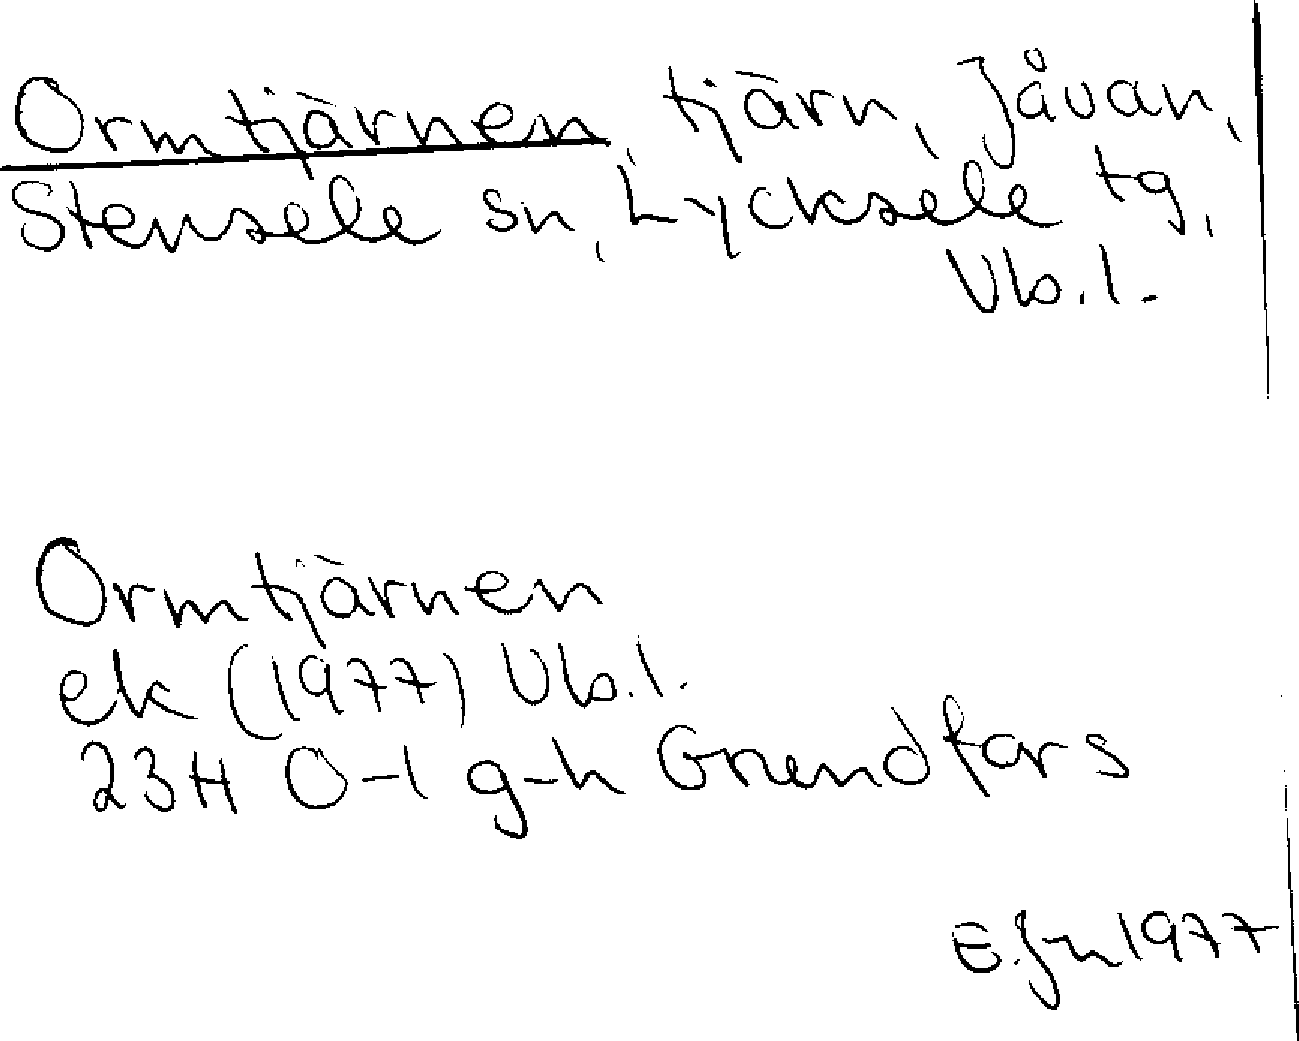 Ormtjärnen, tjärn, Jåvan,
Stensele sn, Lycksele tg,
Vb.l.
Ormtjärnen
ek (1977) Vb.l.
23H 0-1 g-h Grundfors
E.Jn 1977